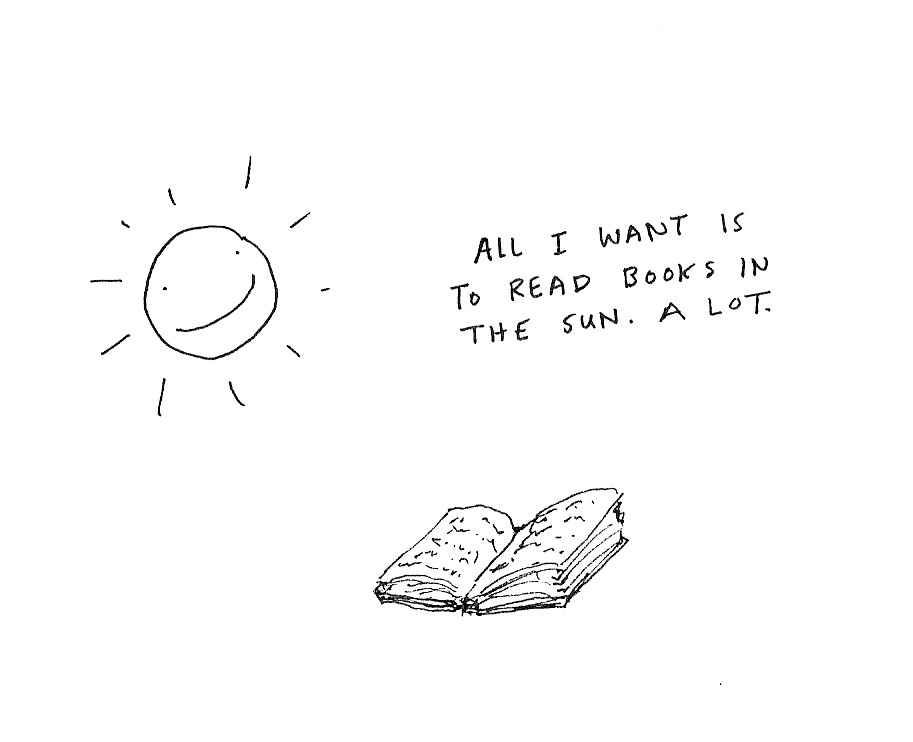 ALL I WANT IS
TO READ BOOKS IN
THE SUN. A LOT.